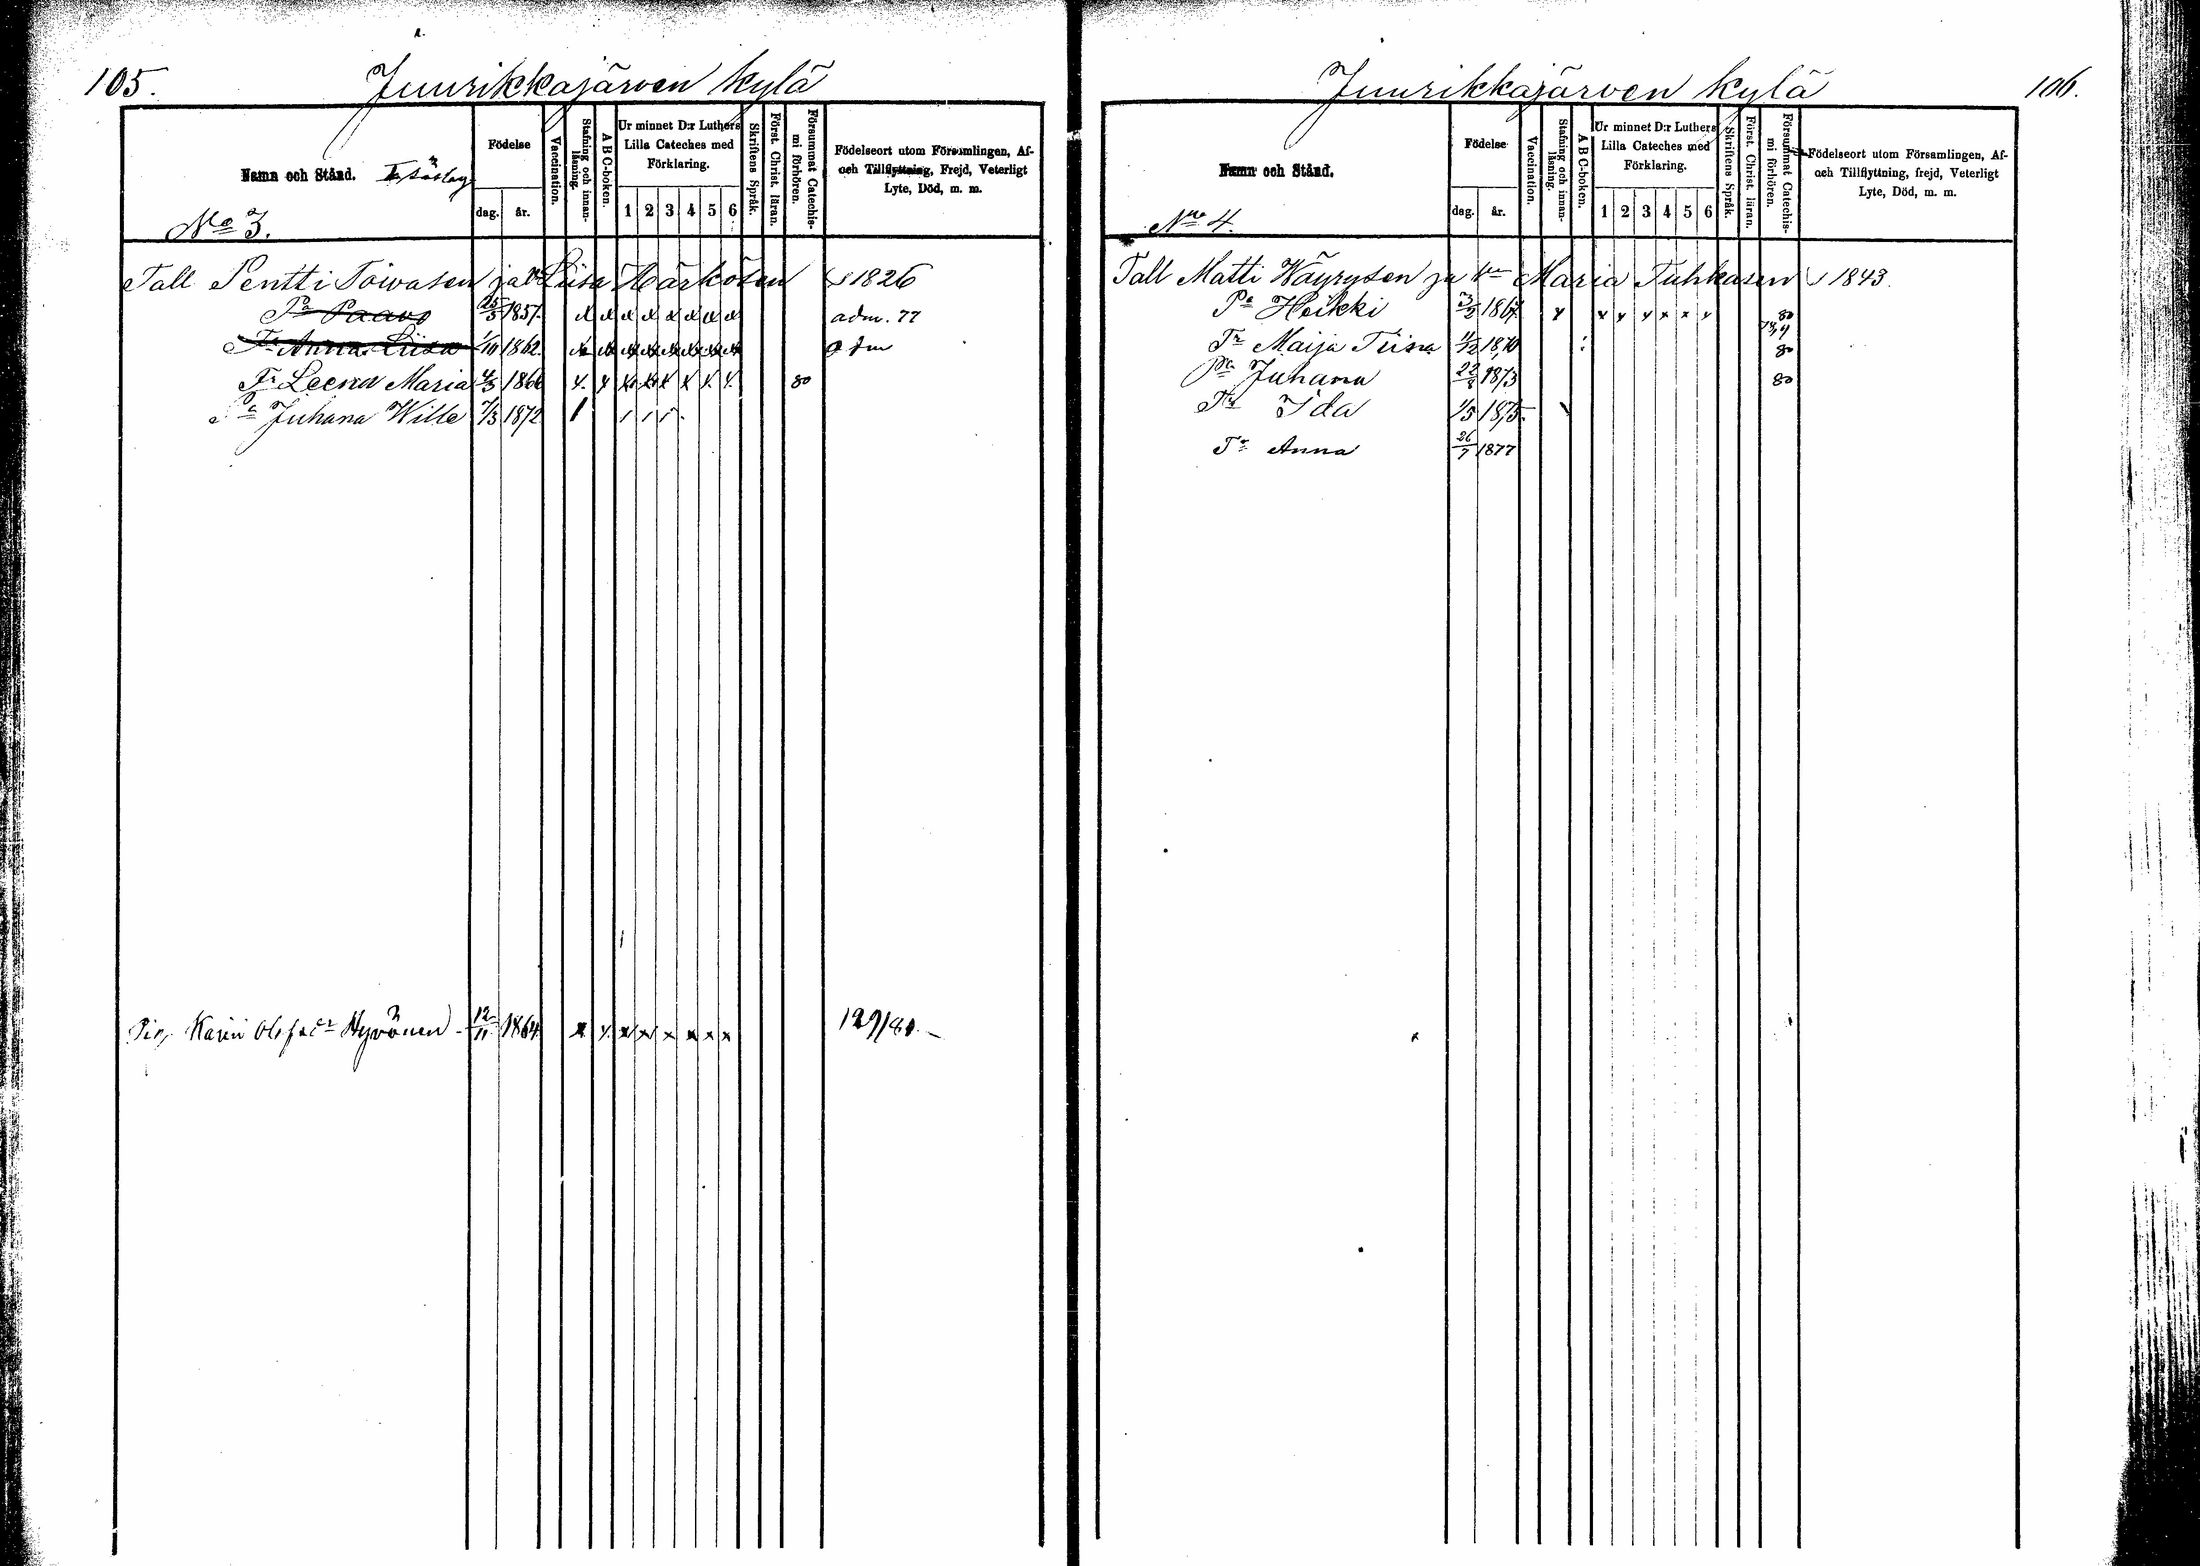 105.
Juurikkajärven kylä
Namn och Stånd.
Födelse
dag. år.
Vaccination.
Stafning och innanläsning.
A B C-boken.
Ur minnet D:r Luthers Lilla Cateches med Förklaring.
1 2 3 4 5 6
Skriftens Språk.
Först. Christ. läran.
Försummat Catechismi förhören.
Födelseort utom Församlingen, Af- och Tillflyttning, Frejd, Veterligt Lyte, Död, m. m.
No 3.
Tall Pentti Toivasen ja Vn Liisa Härkösen s 1826
Pa Paavo 25/5 1857. x x x x x x x x adm. 77
Tr Anna Liisa 1/10 1862. x x x x x x x x adm
Tr Leena Maria 4/3 1866 x x x x x x x x 80
Pa Juhana Wille 7/3 1872
Karin Hyvönen 12/11 1864. x x x x x x x x 129/80.
106.
Juurikkajärven kylä
Namn och Stånd.
Födelse
dag. år.
Vaccination.
Stafning och innanläsning.
A B C-boken.
Ur minnet D:r Luthers Lilla Cateches med Förklaring.
1 2 3 4 5 6
Skriftens Språk.
Först. Christ. läran.
Försummat Catechismi förhören.
Födelseort utom Församlingen, Af- och Tillflyttning, frejd, Veterligt Lyte, Död, m. m.
No 4.
Tall Matti Wäyrysen ja Vn Maria Tuhkasen s 1843.
Pa Heikki 3/2 1867. x x x x x x x 80
Tr Maija Tiisa 4/12 1870 80
Pa Juhana 22/8 1873 80
Tr Ida 1/5 1875.
Tr Anna 26/7 1877